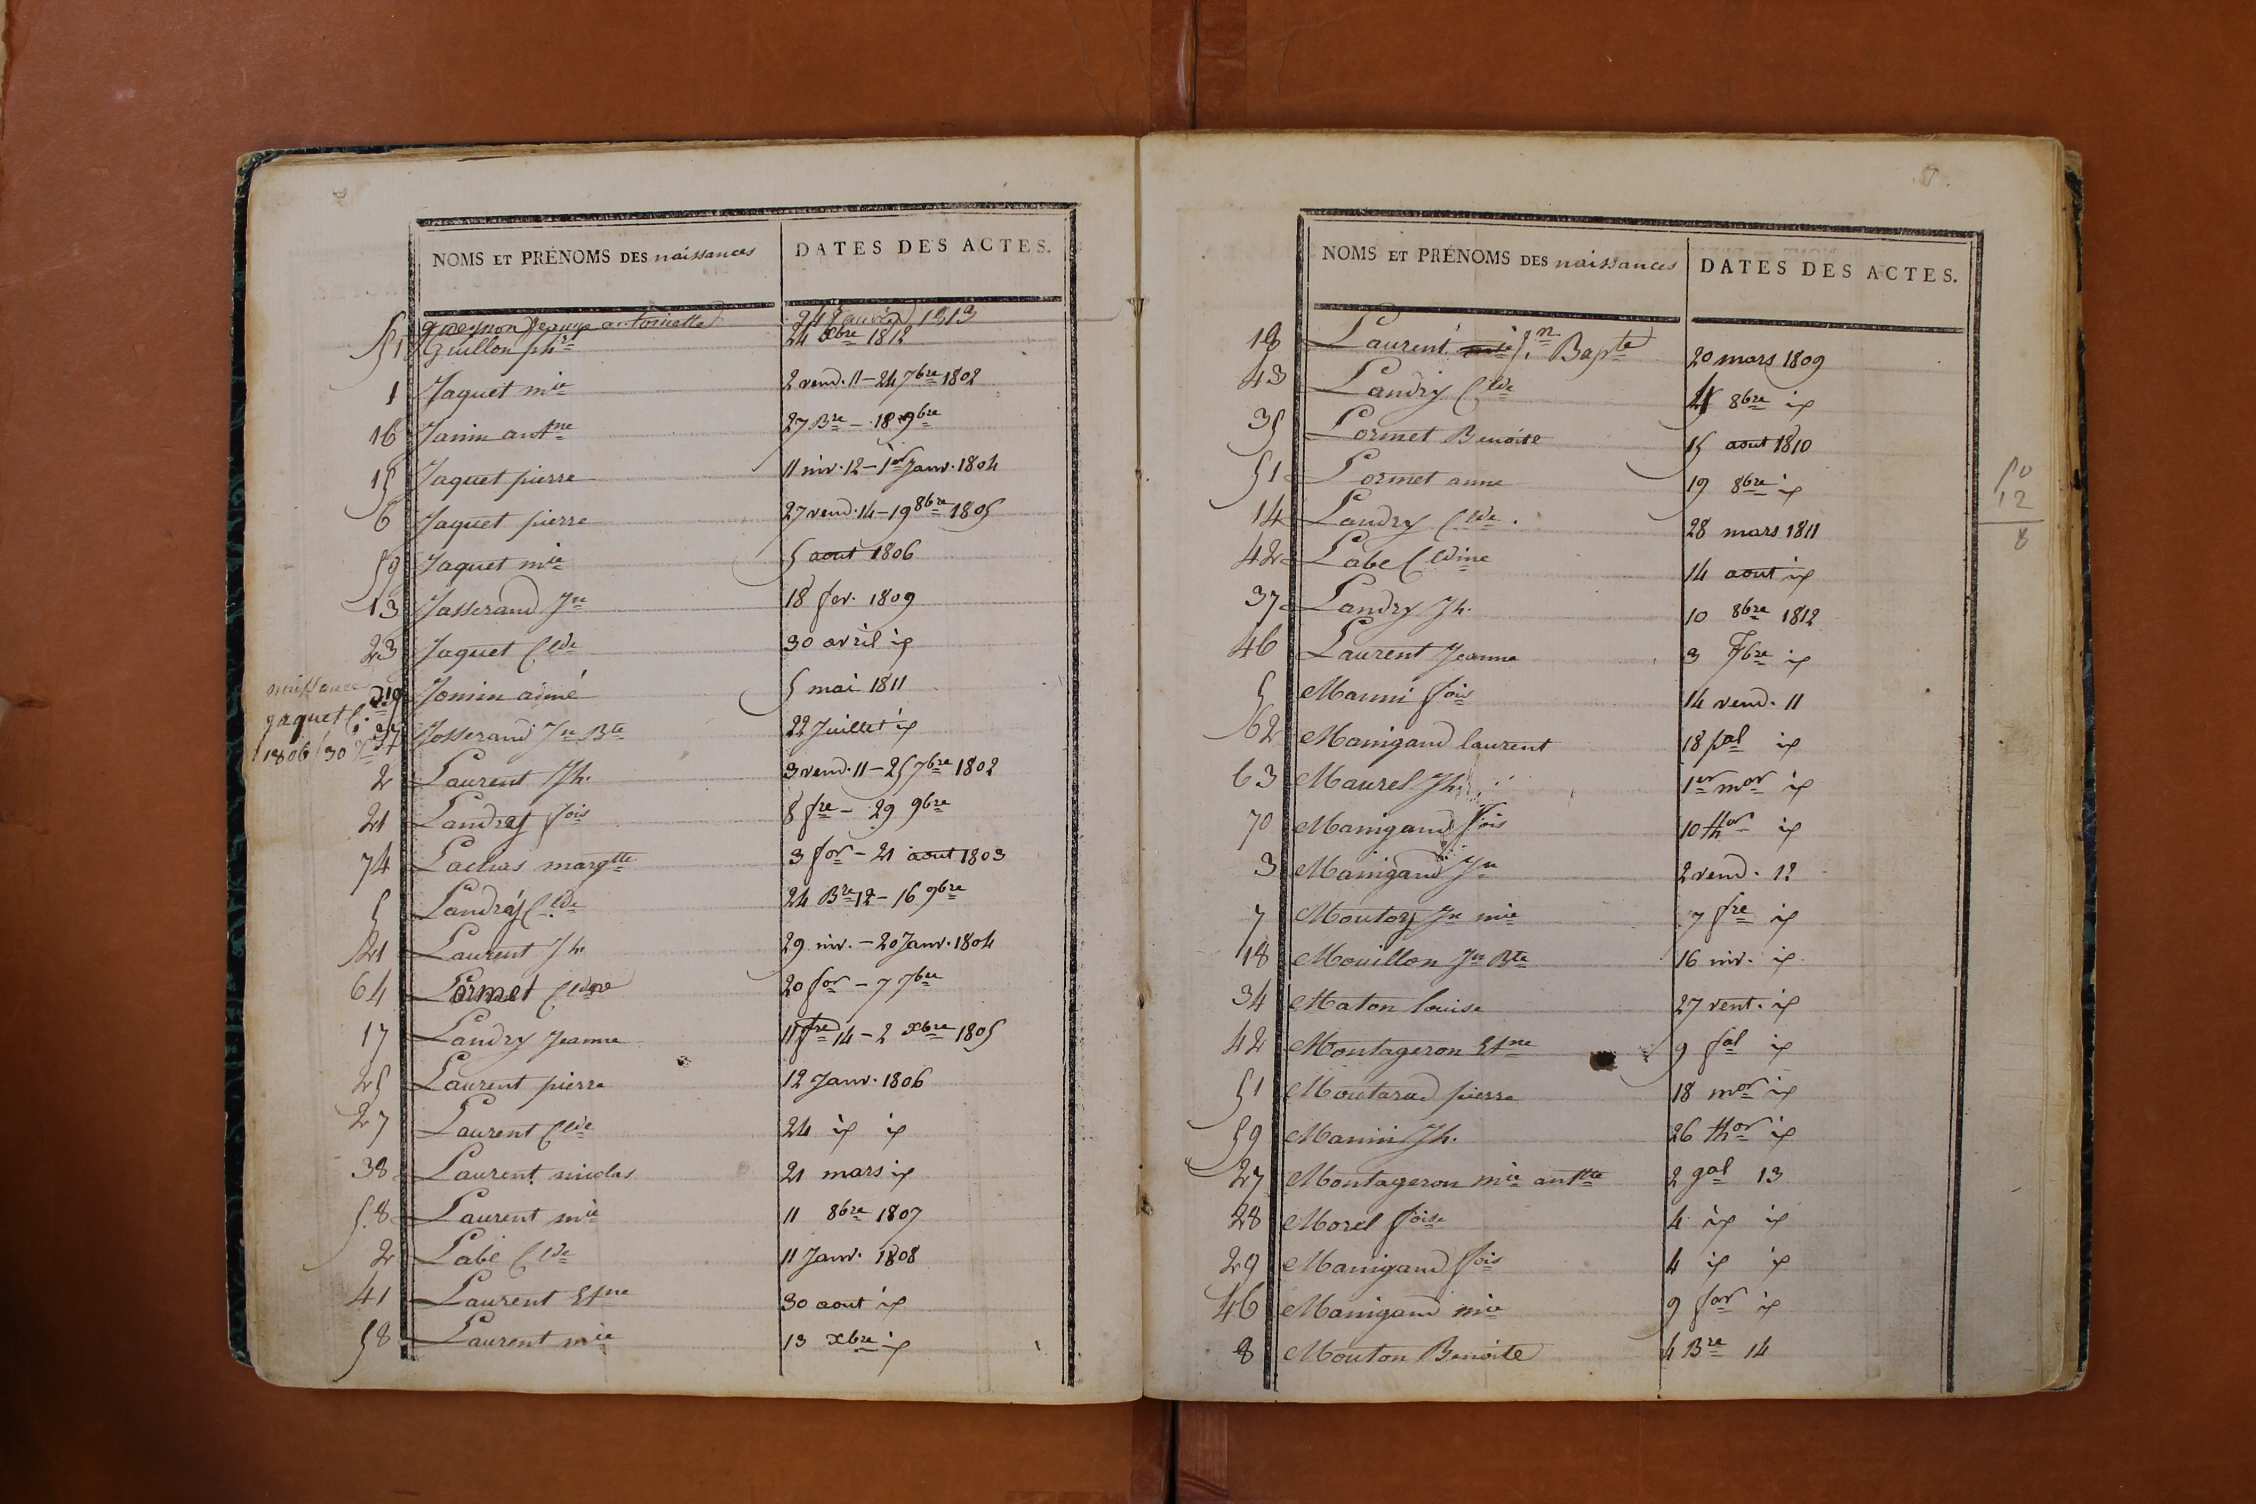 NOMS ET PRÉNOMS DES naissances DATES DES ACTES.
Jeanne antoinette 24 Janvier 1813
51 Guillon phrt 24 xbre 1812
1 Jaquet mie 2 vend. 11 - 24 7bre 1802
16 Janin antne 27 Bre - 18 9bre
15 Jaquet pierre 11 niv. 12 - 1er Janv. 1804
6 Jaquet pierre 27 vend. 14 - 19 8bre 1805
59 Jaquet mie 5 aout 1806
13 Josserand Jn 18 fev. 1809
23 Jaquet Clde 30 avril id
naissance
19 Jonin aimé 5 mai 1811
jaquet C.
37 Josserand Jn Bte 22 Juillet id
1806 30
2 Laurent Jh. 3 vend. 11 - 25 7bre 1802
21 Landrey fois 8 fre - 29 9bre
74 Lachas margtte 3 for - 21 aout 1803
5 Landrey Clde 24 Bre 12 - 16 9bre
21 Laurent Jh. 29 niv. - 20 Janv. 1804
64 Lormet Cldne 20 for - 7 7bre
17 Landry Jeanne 11 fre 14 - 2 xbre 1805
25 Laurent pierre 12 Janv. 1806
27 Laurent Clde 24 id id
38 Laurent nicolas 21 mars id
58 Laurent mie 11 8bre 1807
2 Labe Clde 11 Janv. 1808
41 Laurent Etne 30 aout id
58 Laurent mie 13 xbre id
NOMS ET PRÉNOMS DES naissances DATES DES ACTES.
18 Laurent Jn Bapte 20 mars 1809
43 Landry Clde 4 8bre id
35 Lormet Benoite 15 aout 1810
51 Lormet anne 19 8bre id
50
12
8
14 Landry Clde. 28 mars 1811
42 Labe Cldine 14 aout id
37 Landry Jh. 10 8bre 1812
46 Laurent Jeanne 3 xbre id
5 Manni fois 14 vend. 11
62 Manigand laurent 18 pal id
63 Maurel Jh. 1er mor id
70 Manigand fois 10 thor id
3 Manigand Jn 2 vend. 12
7 Moutoz Jn mie 7 fre id
18 Mouillon Jn Bte 16 niv. id
34 Maton louise 27 vent. id
42 Montageron Etne 9 fal id
51 Moutarad pierre 18 mor id
59 Manni Jh. 26 thor id
27 Montageron mie anttte 2 gal 13
28 Morel foise 4 id id
29 Manigand fois 4 id id
46 Manigand mie 9 for id
8 Mouton Benoite 4 Bre 14